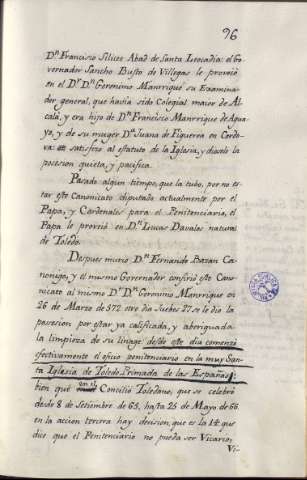 96
Dn. Francisco Siliceo Abad de Santa Leocadia: el Go-
vernador Sancho Busto de Villegas le proveió
en el Dr. Dn. Geronimo Manrrique su Examina-
dor general, que havia sido Colegial maior de Al-
calá, y era hijo de Dn. Francisco Manrrique de Agua-
yo, y de su muger Da. Juana de Figueroa en Cordo-
va: satisfizo al estatuto de la Iglesia, y diosele la
posesion quieta, y pacifica.
Pasado algun tiempo, que la tubo, por no es-
tar este Canonicato diputado actualmente por el
Papa, y Cardenales para el Penitenciario, el
Papa le proveió en Dn. Lucas Davalos natural
de Toledo.
Despues murió Dn. Fernando Bazan Ca-
nonigo, y el mismo Governador confirió este Cano-
nicato al mismo Dr. Dn. Geronimo Manrrique en
26 de Marzo de 572 otro dia Juebes 27 se le dió la
posesion por estar ya calificada, y aberiguada
la limpieza de su linage desde este dia comenzó
efectivamente el oficio penitenciario en la muy San-
ta Iglesia de Toledo Primada de las Españas;
bien que en el Concilio Toledano, que se celebró
desde 8 de Setiembre de 65, hasta 25 de Mayo de 66
en la accion tercera hay decision, que es la 14 que
dice que el Penitenciario no pueda ser Vicario,
Vi-